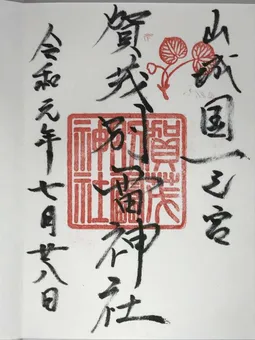 山城国一之宮
賀茂別雷神社
令和元年七月廿八日
賀茂別雷神社